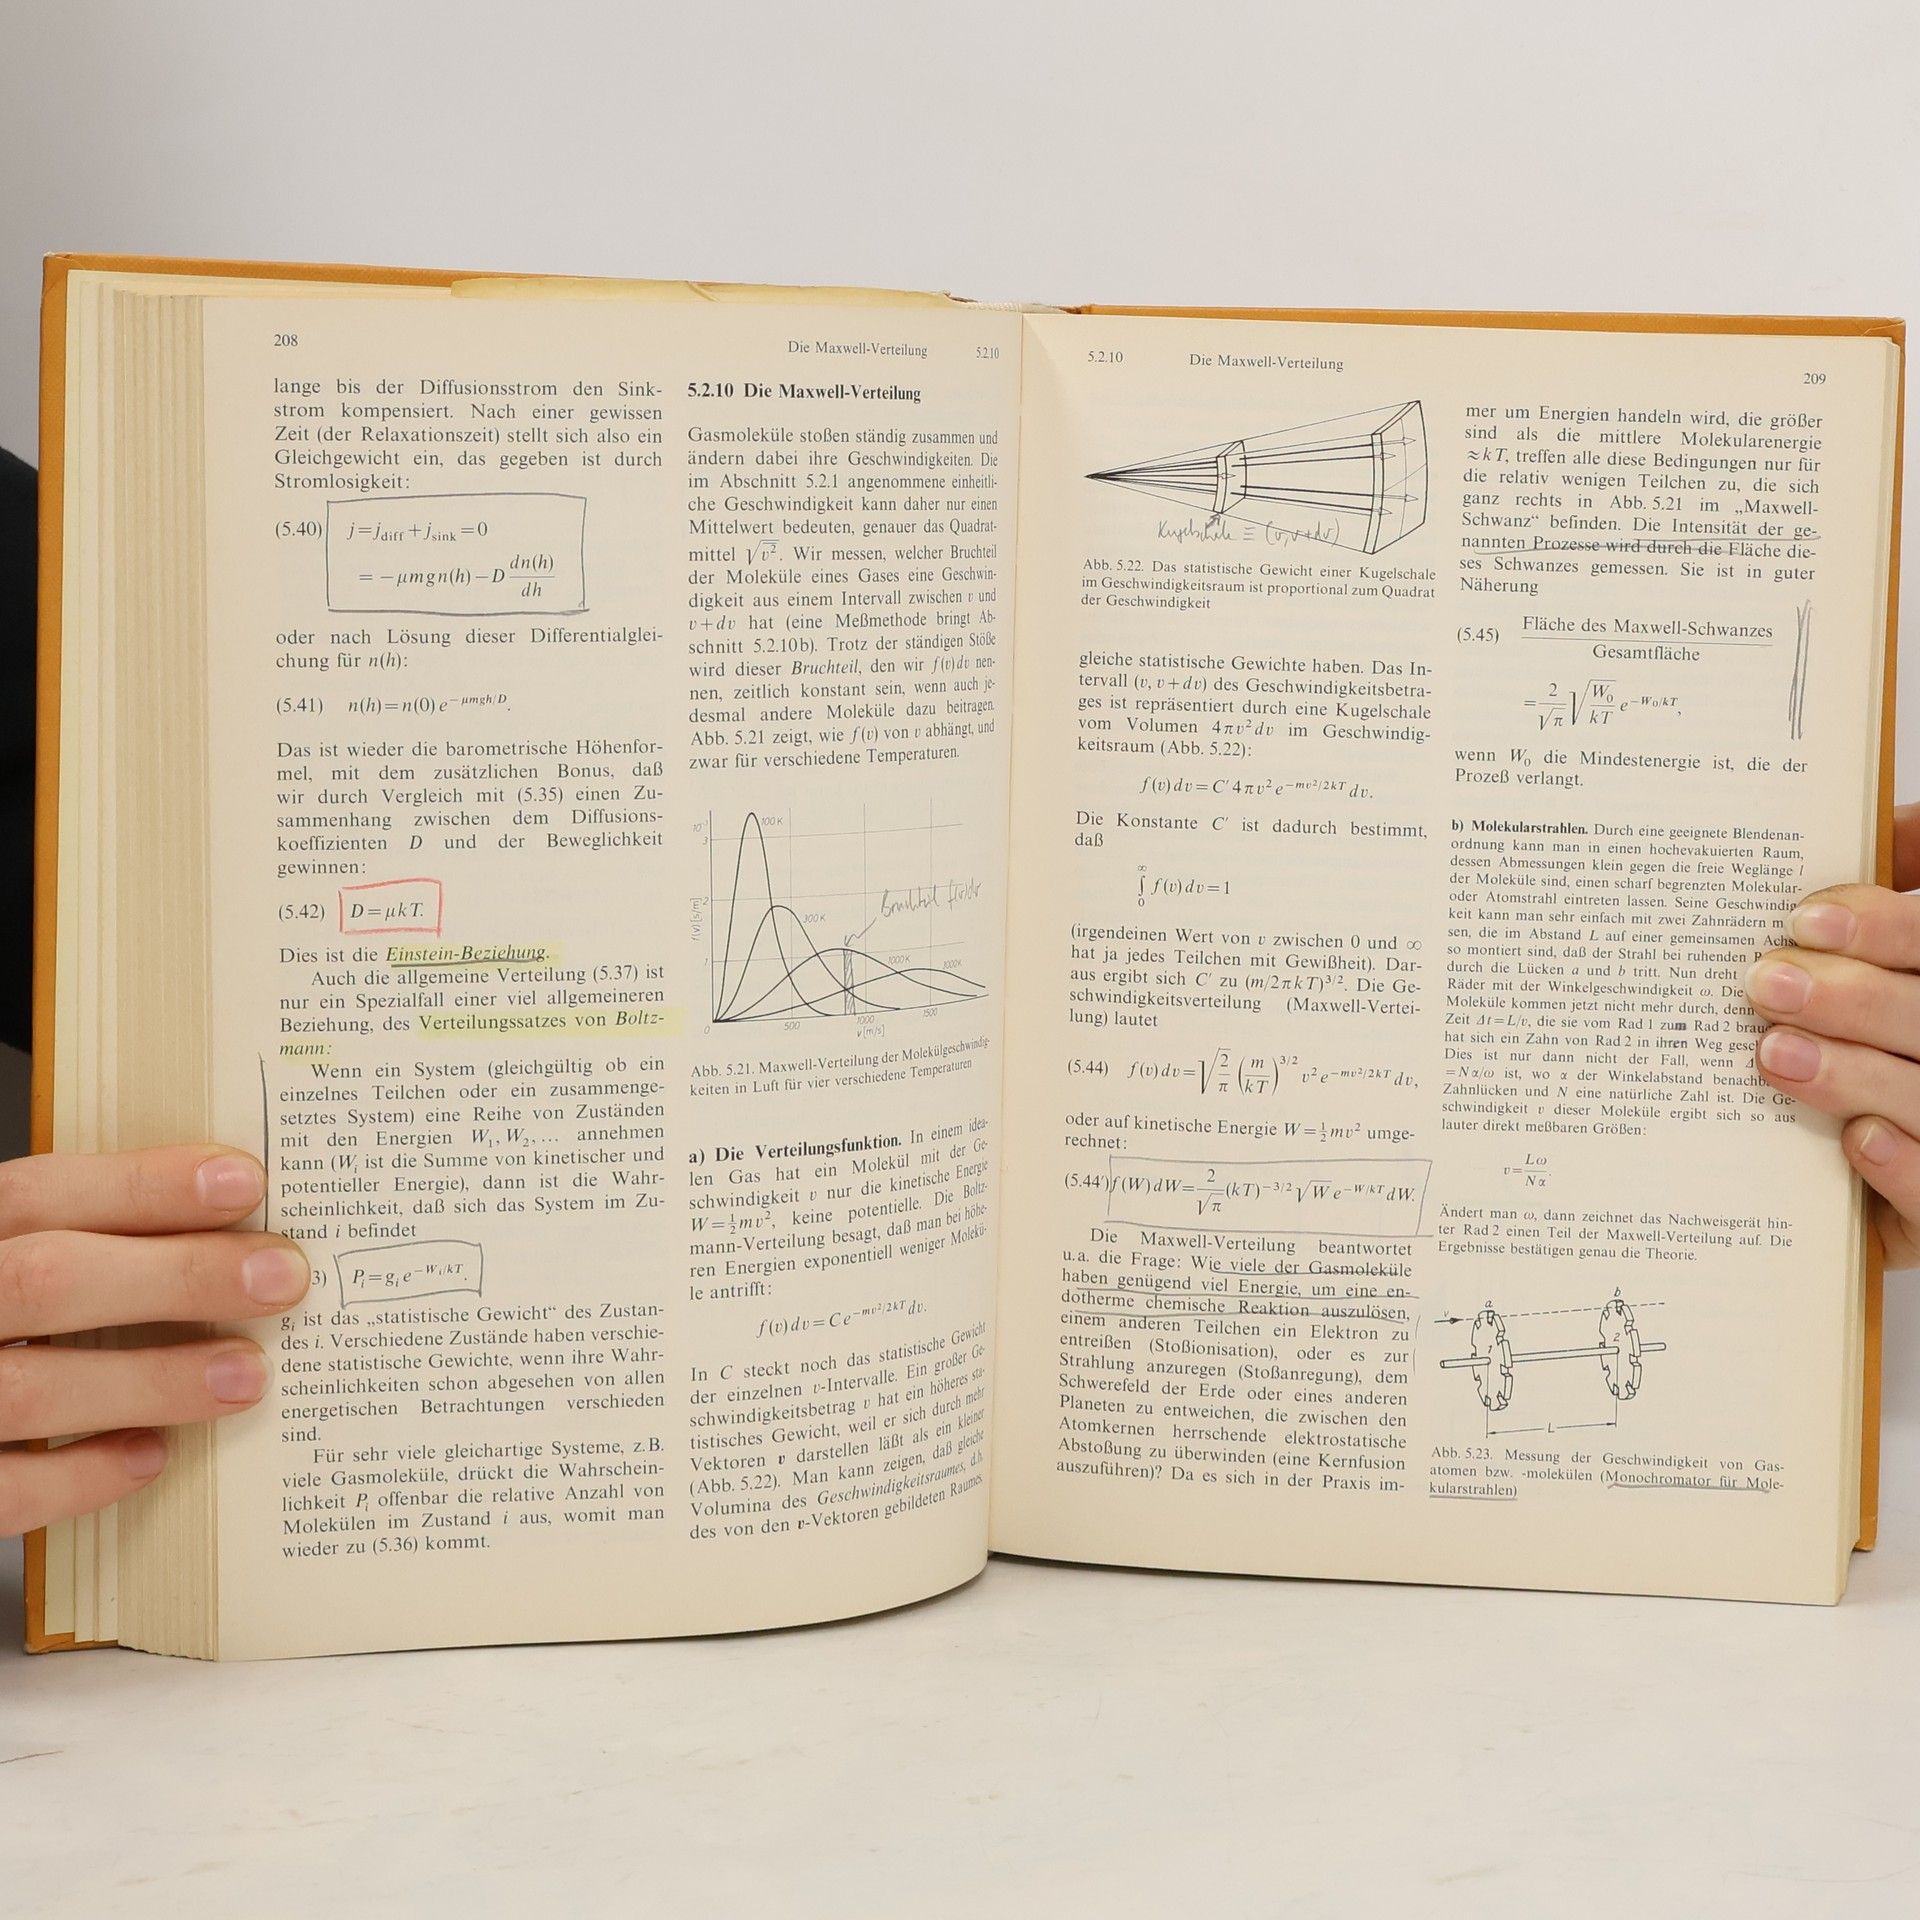 208
Die Maxwell-Verteilung 5.2.10
lange bis der Diffusionsstrom den Sink-
strom kompensiert. Nach einer gewissen
Zeit (der Relaxationszeit) stellt sich also ein
Gleichgewicht ein, das gegeben ist durch
Stromlosigkeit:
(5.40) j=j_diff+j_sink=0
= −μmgn(h)−D dn(h)/dh
oder nach Lösung dieser Differentialglei-
chung für n(h):
(5.41) n(h)=n(0) e^−μmgh/D.
Das ist wieder die barometrische Höhenfor-
mel, mit dem zusätzlichen Bonus, daß
wir durch Vergleich mit (5.35) einen Zu-
sammenhang zwischen dem Diffusions-
koeffizienten D und der Beweglichkeit
gewinnen:
(5.42) D=μkT.
Dies ist die Einstein-Beziehung.
Auch die allgemeine Verteilung (5.37) ist
nur ein Spezialfall einer viel allgemeineren
Beziehung, des Verteilungssatzes von Boltz-
mann:
Wenn ein System (gleichgültig ob ein
einzelnes Teilchen oder ein zusammenge-
setztes System) eine Reihe von Zuständen
mit den Energien W₁, W₂, ... annehmen
kann (Wᵢ ist die Summe von kinetischer und
potentieller Energie), dann ist die Wahr-
scheinlichkeit, daß sich das System im Zu-
stand i befindet
3) Pᵢ=gᵢ e^−Wᵢ/kT.
gᵢ ist das „statistische Gewicht“ des Zustan-
des i. Verschiedene Zustände haben verschie-
dene statistische Gewichte, wenn ihre Wahr-
scheinlichkeiten schon abgesehen von allen
energetischen Betrachtungen verschieden
sind.
Für sehr viele gleichartige Systeme, z.B.
viele Gasmoleküle, drückt die Wahrschein-
lichkeit Pᵢ offenbar die relative Anzahl von
Molekülen im Zustand i aus, womit man
wieder zu (5.36) kommt.
5.2.10 Die Maxwell-Verteilung
Gasmoleküle stoßen ständig zusammen und
ändern dabei ihre Geschwindigkeiten. Die
im Abschnitt 5.2.1 angenommene einheitli-
che Geschwindigkeit kann daher nur einen
Mittelwert bedeuten, genauer das Quadrat-
mittel √v̄². Wir messen, welcher Bruchteil
der Moleküle eines Gases eine Geschwin-
digkeit aus einem Intervall zwischen v und
v+dv hat (eine Meßmethode bringt Ab-
schnitt 5.2.10b). Trotz der ständigen Stöße
wird dieser Bruchteil, den wir f(v)dv nen-
nen, zeitlich konstant sein, wenn auch je-
desmal andere Moleküle dazu beitragen.
Abb. 5.21 zeigt, wie f(v) von v abhängt, und
zwar für verschiedene Temperaturen.
10⁻³
3
2
1
0
f(v)[s/m]
100 K
300 K
1000 K
1000K
Bruchteil f(v)dv
500 1000 1500
v[m/s]
Abb. 5.21. Maxwell-Verteilung der Molekülgeschwindig-
keiten in Luft für vier verschiedene Temperaturen
a) Die Verteilungsfunktion. In einem idea-
len Gas hat ein Molekül mit der Ge-
schwindigkeit v nur die kinetische Energie
W=½mv², keine potentielle. Die Boltz-
mann-Verteilung besagt, daß man bei höhe-
ren Energien exponentiell weniger Molekü-
le antrifft:
f(v)dv=C e^−mv²/2kT dv.
In C steckt noch das statistische Gewicht
der einzelnen v-Intervalle. Ein großer Ge-
schwindigkeitsbetrag v hat ein höheres sta-
tistisches Gewicht, weil er sich durch mehr
Vektoren v darstellen läßt als ein kleiner
(Abb. 5.22). Man kann zeigen, daß gleiche
Volumina des Geschwindigkeitsraumes, d.h.
des von den v-Vektoren gebildeten Raumes,
5.2.10 Die Maxwell-Verteilung
209
Kugelschale ≡ (v,v+dv)
Abb. 5.22. Das statistische Gewicht einer Kugelschale
im Geschwindigkeitsraum ist proportional zum Quadrat
der Geschwindigkeit
gleiche statistische Gewichte haben. Das In-
tervall (v, v+dv) des Geschwindigkeitsbetra-
ges ist repräsentiert durch eine Kugelschale
vom Volumen 4πv²dv im Geschwindig-
keitsraum (Abb. 5.22):
f(v)dv=C′4πv² e^−mv²/2kT dv.
Die Konstante C′ ist dadurch bestimmt,
daß
∫₀^∞ f(v)dv=1
(irgendeinen Wert von v zwischen 0 und ∞
hat ja jedes Teilchen mit Gewißheit). Dar-
aus ergibt sich C′ zu (m/2πkT)^3/2. Die Ge-
schwindigkeitsverteilung (Maxwell-Vertei-
lung) lautet
(5.44) f(v)dv=√(2/π) (m/kT)^3/2 v² e^−mv²/2kT dv,
oder auf kinetische Energie W=½mv² umge-
rechnet:
(5.44′) f(W)dW=2/√π (kT)^−3/2 √W e^−W/kT dW.
Die Maxwell-Verteilung beantwortet
u.a. die Frage: Wie viele der Gasmoleküle
haben genügend viel Energie, um eine en-
dotherme chemische Reaktion auszulösen,
einem anderen Teilchen ein Elektron zu
entreißen (Stoßionisation), oder es zur
Strahlung anzuregen (Stoßanregung), dem
Schwerefeld der Erde oder eines anderen
Planeten zu entweichen, die zwischen den
Atomkernen herrschende elektrostatische
Abstoßung zu überwinden (eine Kernfusion
auszuführen)? Da es sich in der Praxis im-
mer um Energien handeln wird, die größer
sind als die mittlere Molekularenergie
≈kT, treffen alle diese Bedingungen nur für
die relativ wenigen Teilchen zu, die sich
ganz rechts in Abb. 5.21 im „Maxwell-
Schwanz“ befinden. Die Intensität der ge-
nannten Prozesse wird durch die Fläche die-
ses Schwanzes gemessen. Sie ist in guter
Näherung
(5.45) Fläche des Maxwell-Schwanzes
Gesamtfläche
=2/√π √(W₀/kT) e^−W₀/kT,
wenn W₀ die Mindestenergie ist, die der
Prozeß verlangt.
b) Molekularstrahlen. Durch eine geeignete Blendenan-
ordnung kann man in einen hochevakuierten Raum,
dessen Abmessungen klein gegen die freie Weglänge l
der Moleküle sind, einen scharf begrenzten Molekular-
oder Atomstrahl eintreten lassen. Seine Geschwindig-
keit kann man sehr einfach mit zwei Zahnrädern
sen, die im Abstand L auf einer gemeinsamen Achse
so montiert sind, daß der Strahl bei ruhenden
durch die Lücken a und b tritt. Nun dreht
Räder mit der Winkelgeschwindigkeit ω. Die
Moleküle kommen jetzt nicht mehr durch, denn
Zeit Δt=L/v, die sie vom Rad 1 zum Rad 2
hat sich ein Zahn von Rad 2 in ihren Weg
Dies ist nur dann nicht der Fall, wenn
=Nα/ω ist, wo α der Winkelabstand
Zahnlücken und N eine natürliche Zahl ist. Die Ge-
schwindigkeit v dieser Moleküle ergibt sich so aus
lauter direkt meßbaren Größen:
v=Lω/Nα.
Ändert man ω, dann zeichnet das Nachweisgerät hin-
ter Rad 2 einen Teil der Maxwell-Verteilung auf. Die
Ergebnisse bestätigen genau die Theorie.
v a b
1 2
L
Abb. 5.23. Messung der Geschwindigkeit von Gas-
atomen bzw. -molekülen (Monochromator für Mole-
kularstrahlen)